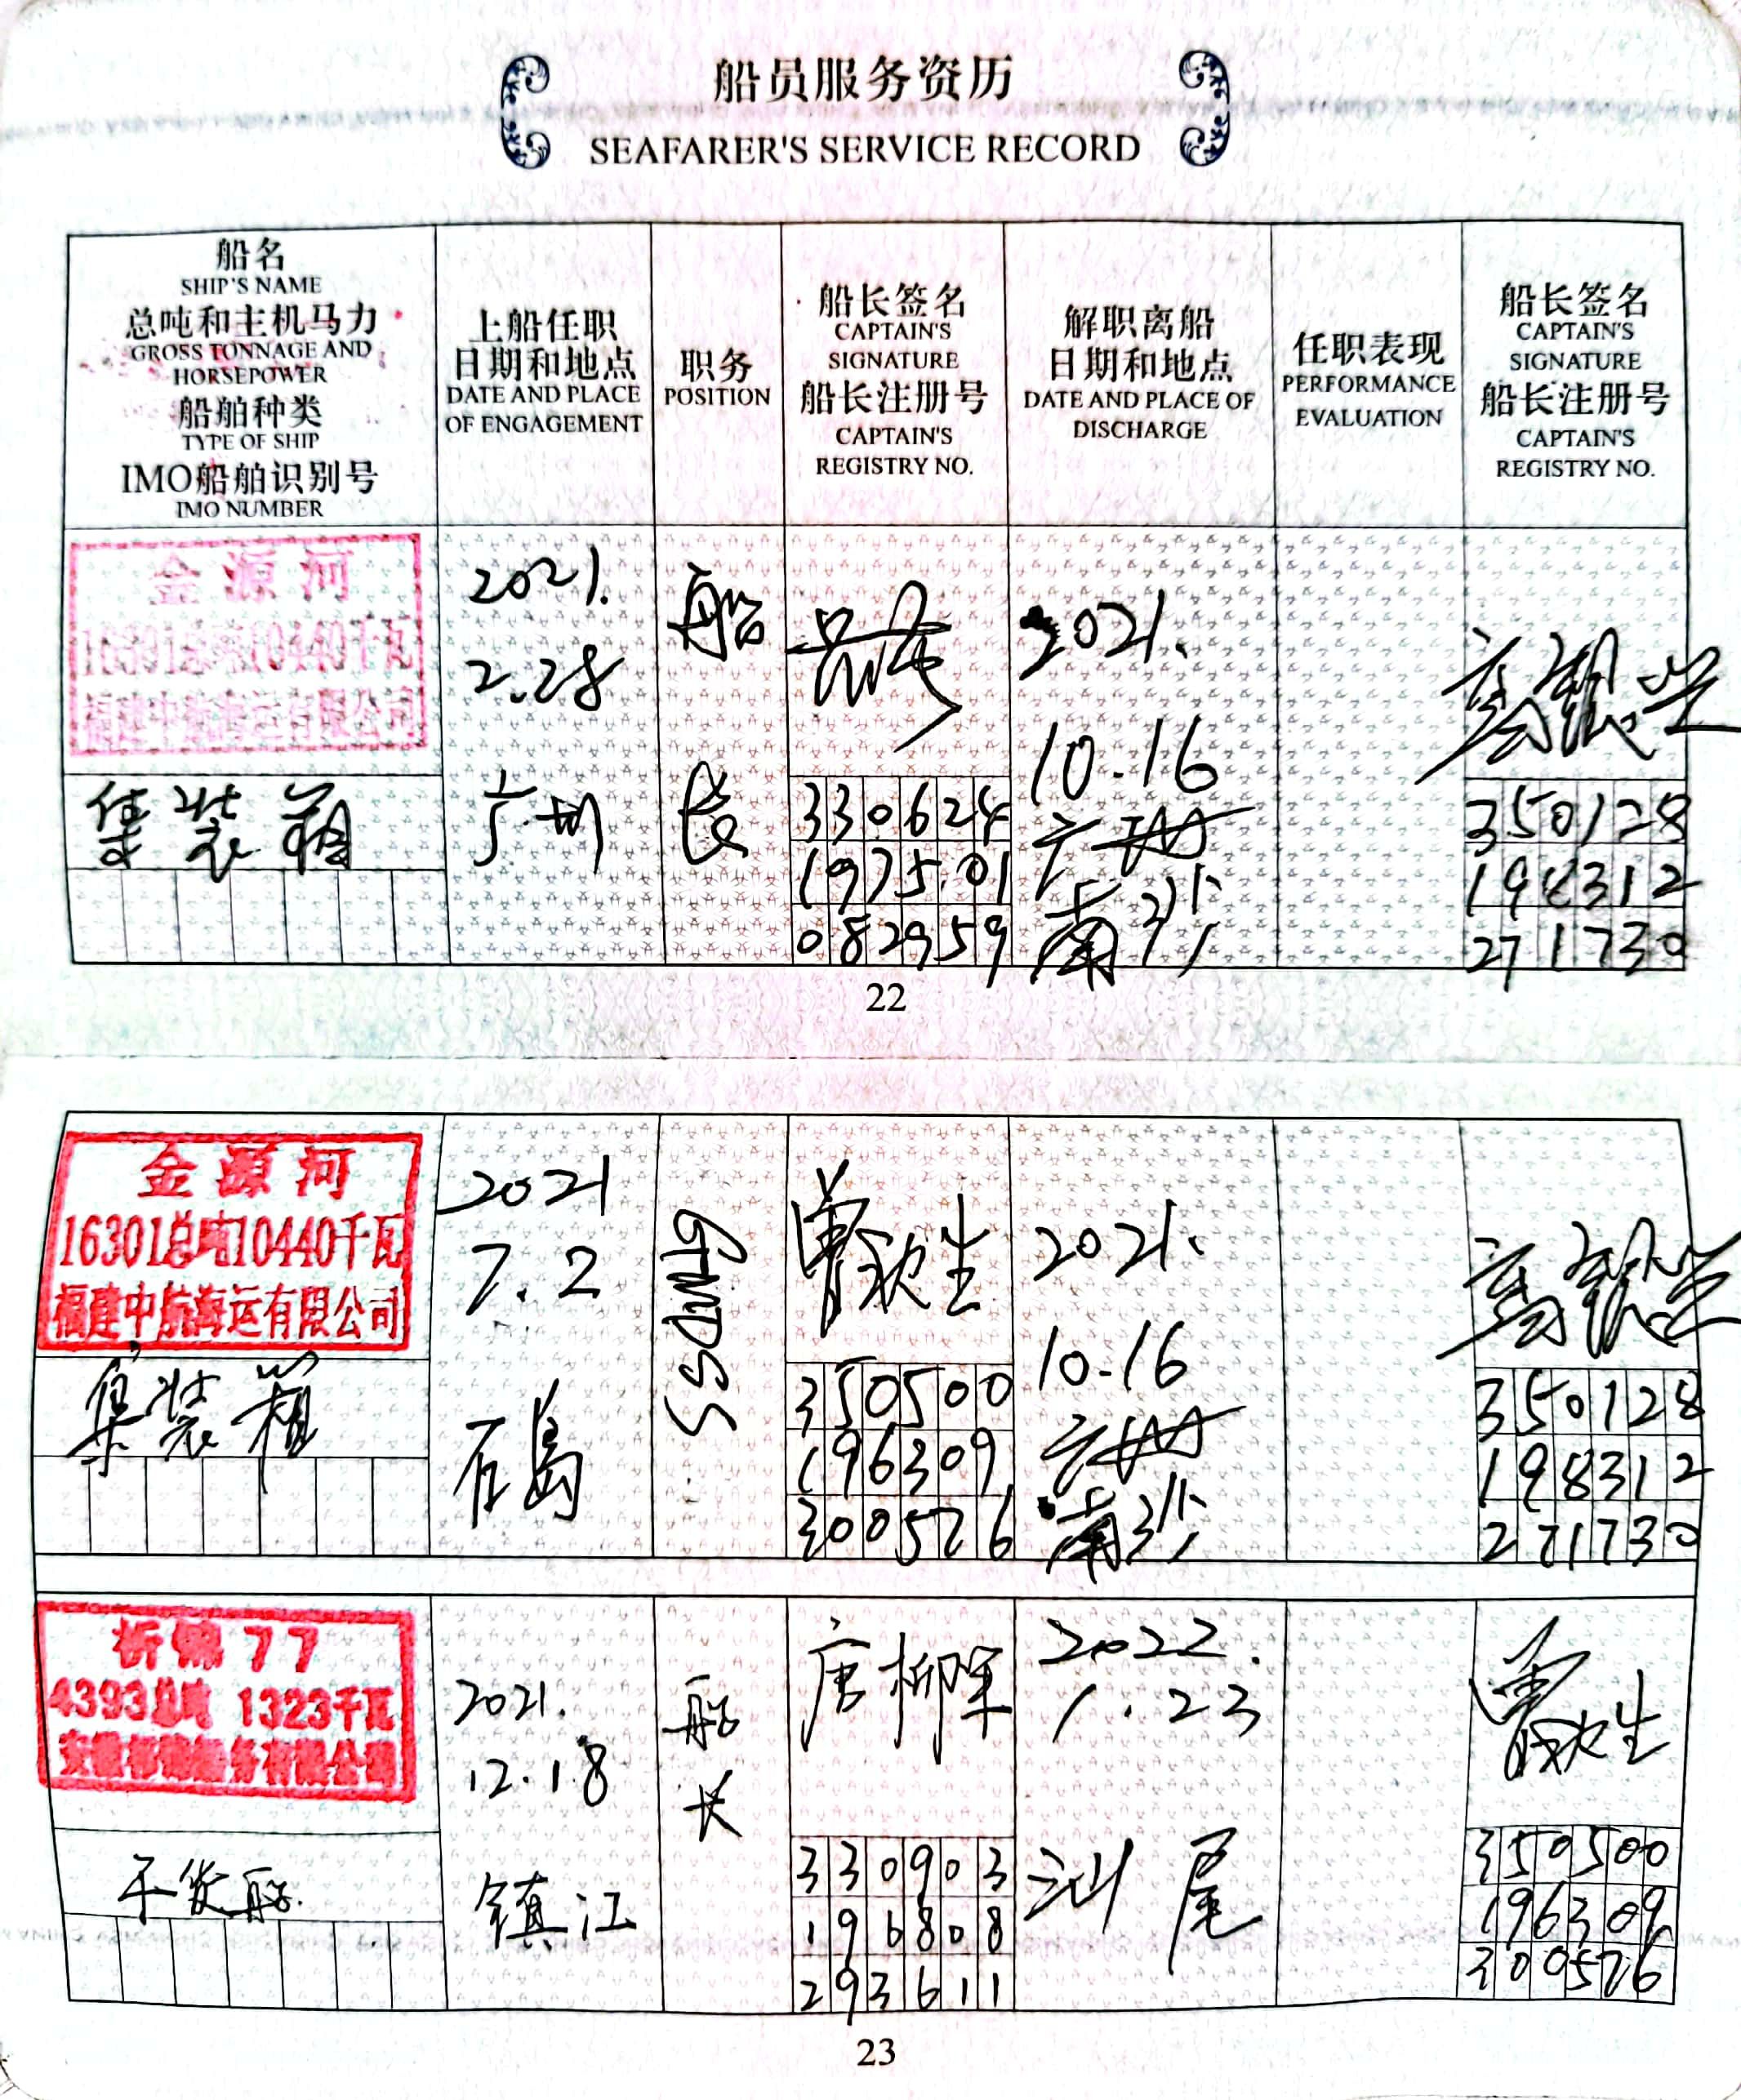 船员服务资历
SEAFARER'S SERVICE RECORD
船名
SHIP'S NAME
总吨和主机马力
GROSS TONNAGE AND
HORSEPOWER
船舶种类
TYPE OF SHIP
IMO船舶识别号
IMO NUMBER
上船任职
日期和地点
DATE AND PLACE
OF ENGAGEMENT
职务
POSITION
船长签名
CAPTAIN'S
SIGNATURE
船长注册号
CAPTAIN'S
REGISTRY NO.
解职离船
日期和地点
DATE AND PLACE OF
DISCHARGE
任职表现
PERFORMANCE
EVALUATION
船长签名
CAPTAIN'S
SIGNATURE
船长注册号
CAPTAIN'S
REGISTRY NO.
金源河
16301总吨10440千瓦
福建中航海运有限公司
集装箱
2021.
2.28
广州
船
长
330624
197501
082959
2021.
10.16
广州
南沙
350128
198312
271730
22
金源河
16301总吨10440千瓦
福建中航海运有限公司
集装箱
2021
7.2
石岛
曾秋生
350500
196309
300576
2021.
10-16
广州
南沙
350128
198312
271730
77
4393总吨 1323千瓦
干货船
2021.
12.18
镇江
船
长
唐柳军
330903
196808
293611
2022.
1.23
汕尾
曾秋生
350500
196309
300576
23